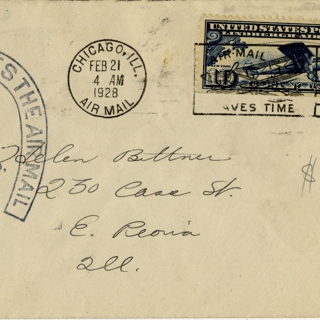 CHICAGO, ILL.
FEB 21
4 AM
1928
AIR MAIL
UNITED STATES POSTAGE
LINDBERGH AIR MAIL
AIR MAIL
AVES TIME
S THE AIR MAIL
Helen Bittner
230 Cass St.
E. Peoria
Ill.
$